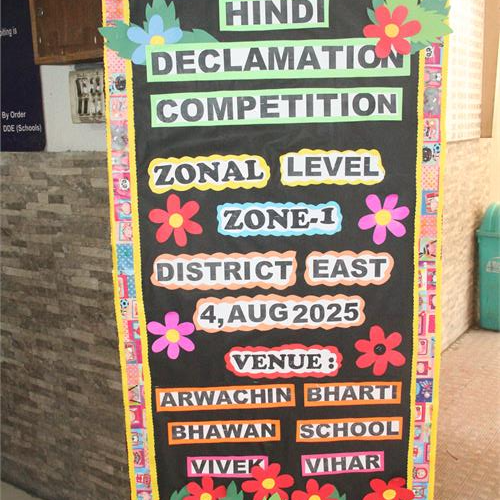 HINDI
DECLAMATION
COMPETITION
ZONAL LEVEL
ZONE-I
DISTRICT EAST
4, AUG 2025
VENUE :
ARWACHIN BHARTI
BHAWAN SCHOOL
VIVEK VIHAR
By Order
DDE (Schools)